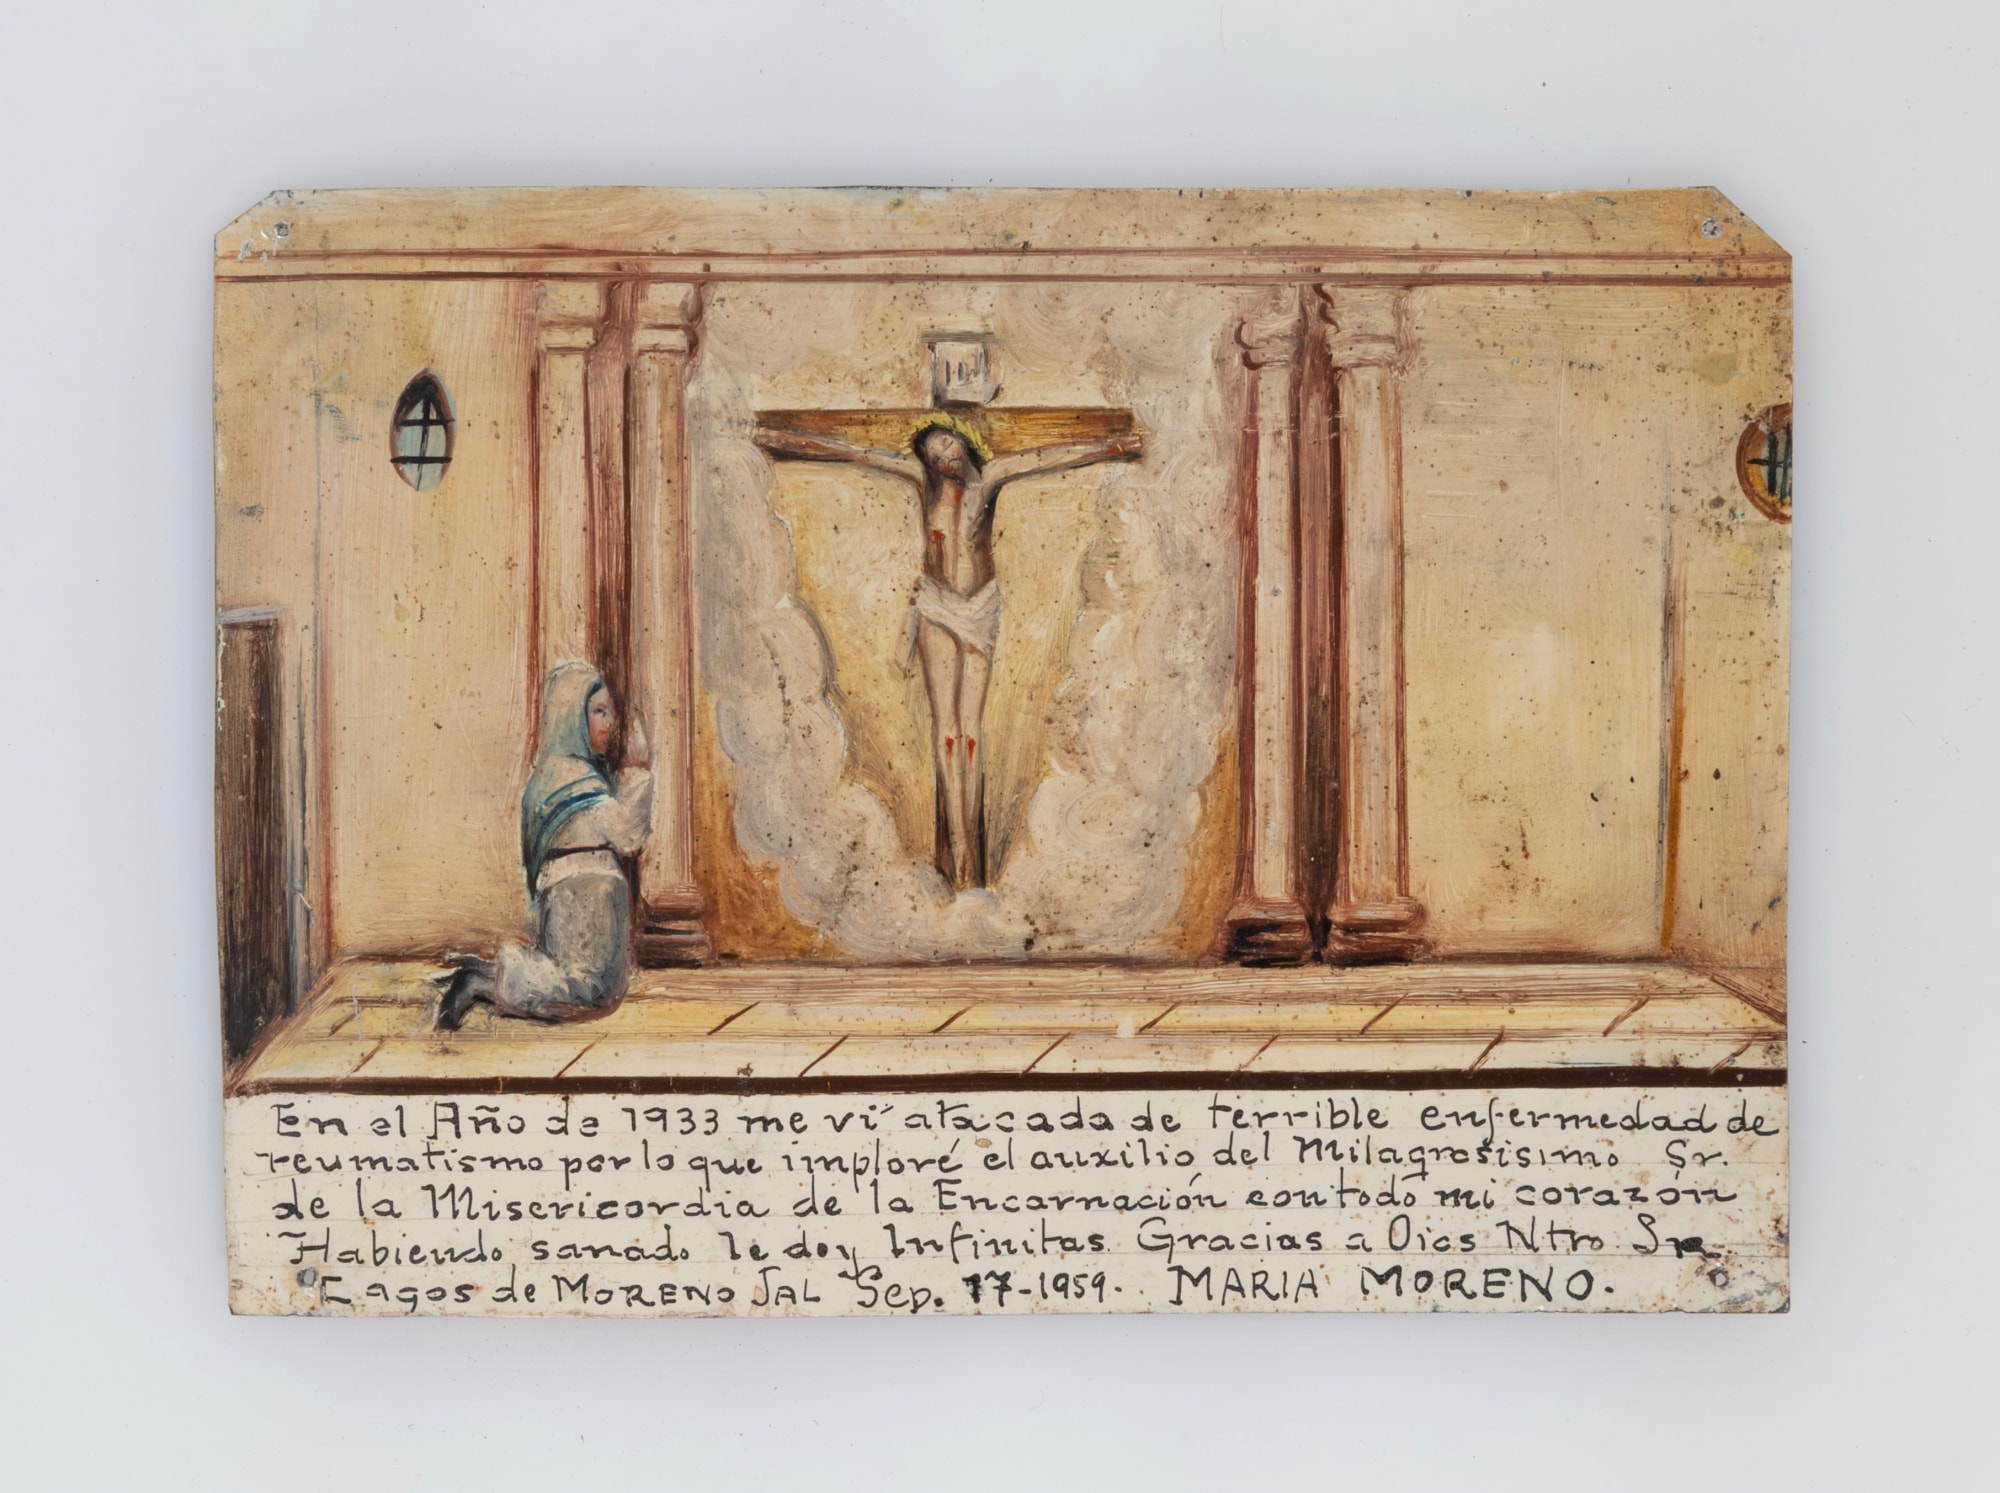 En el Año de 1933 me vi atacada de terrible enfermedad de
reumatismo por lo que imploré el auxilio del Milagrosisimo Sr.
de la Misericordia de la Encarnación con todo mi corazón
Habiendo sanado le doy Infinitas Gracias a Dios Ntro Sr.
Lagos de MORENO JAL Sep. 17-1959. MARIA MORENO.